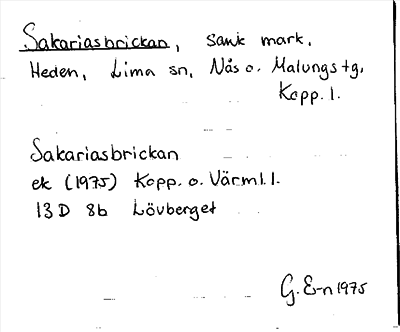 Sakariasbrickan, sank mark,
Heden, Lima sn, Nås o. Malungs tg,
Kopp. l.
Sakariasbrickan
ek (1975) Kopp. o. Värml. l.
13 D 8b Lövberget
G. E-n 1975